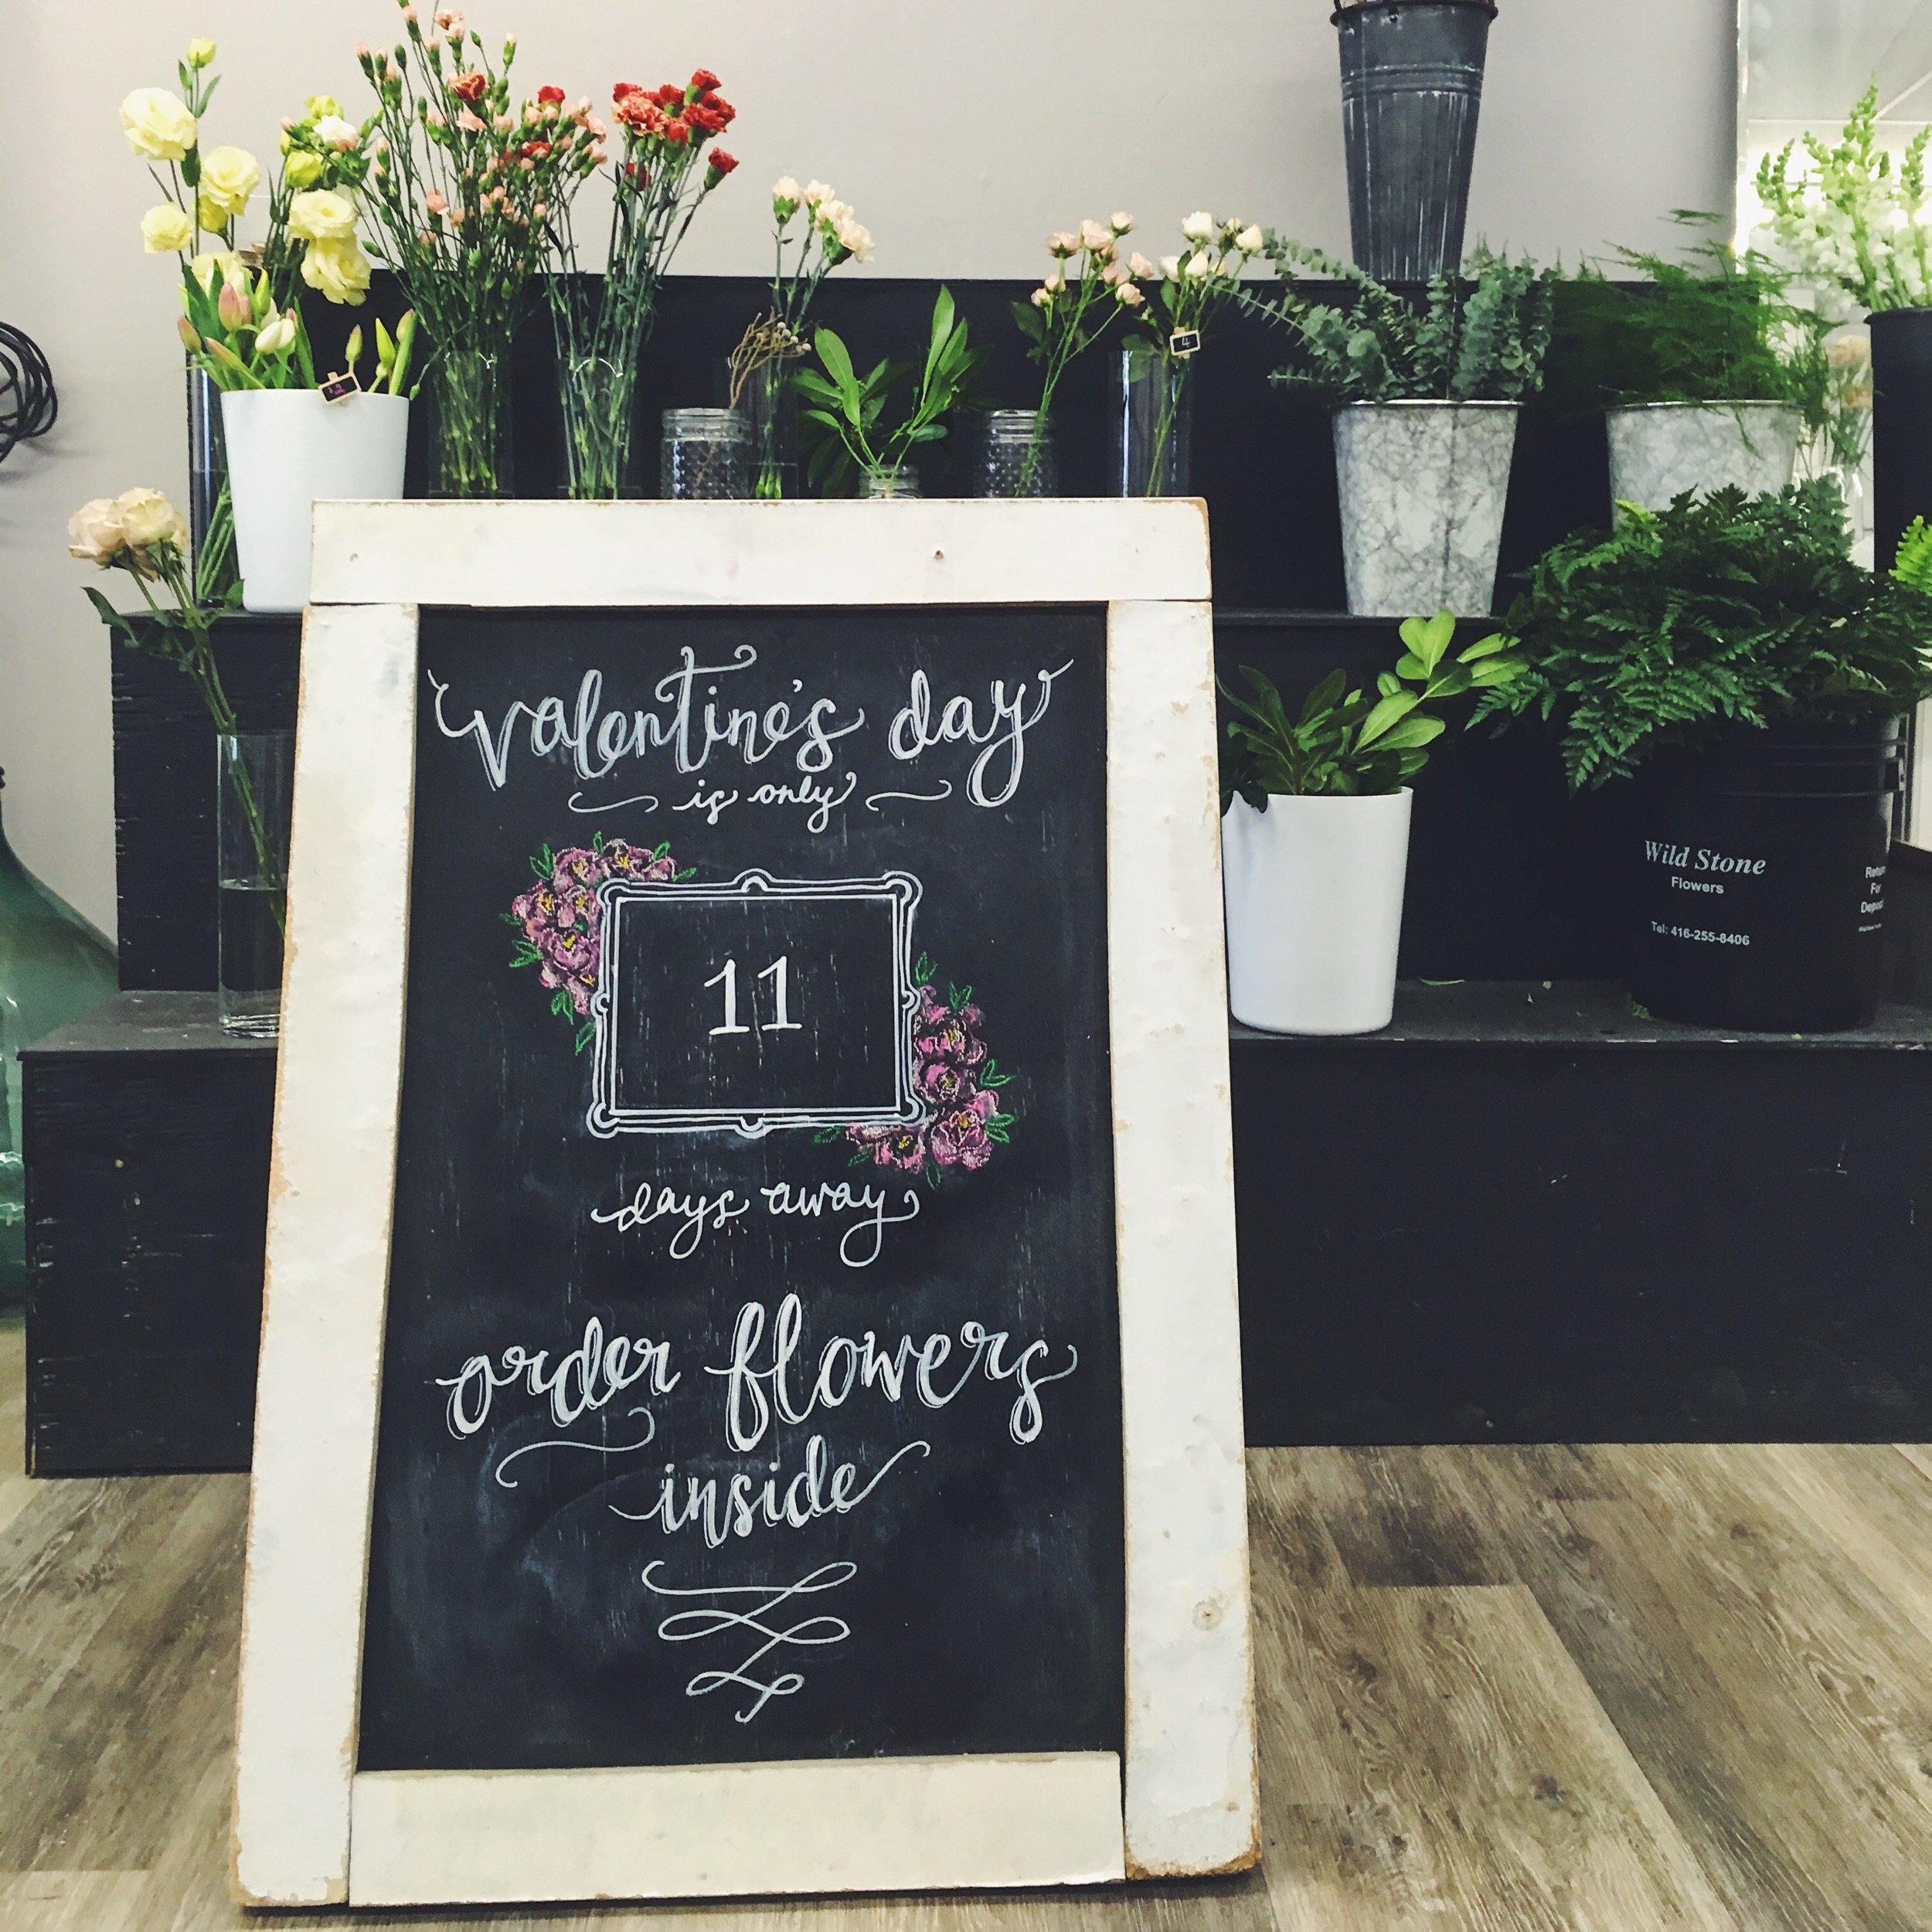 4
valentine's day
is only
11
days away
order flowers
inside
Wild Stone
Flowers
Tel: 416-255-8406
For